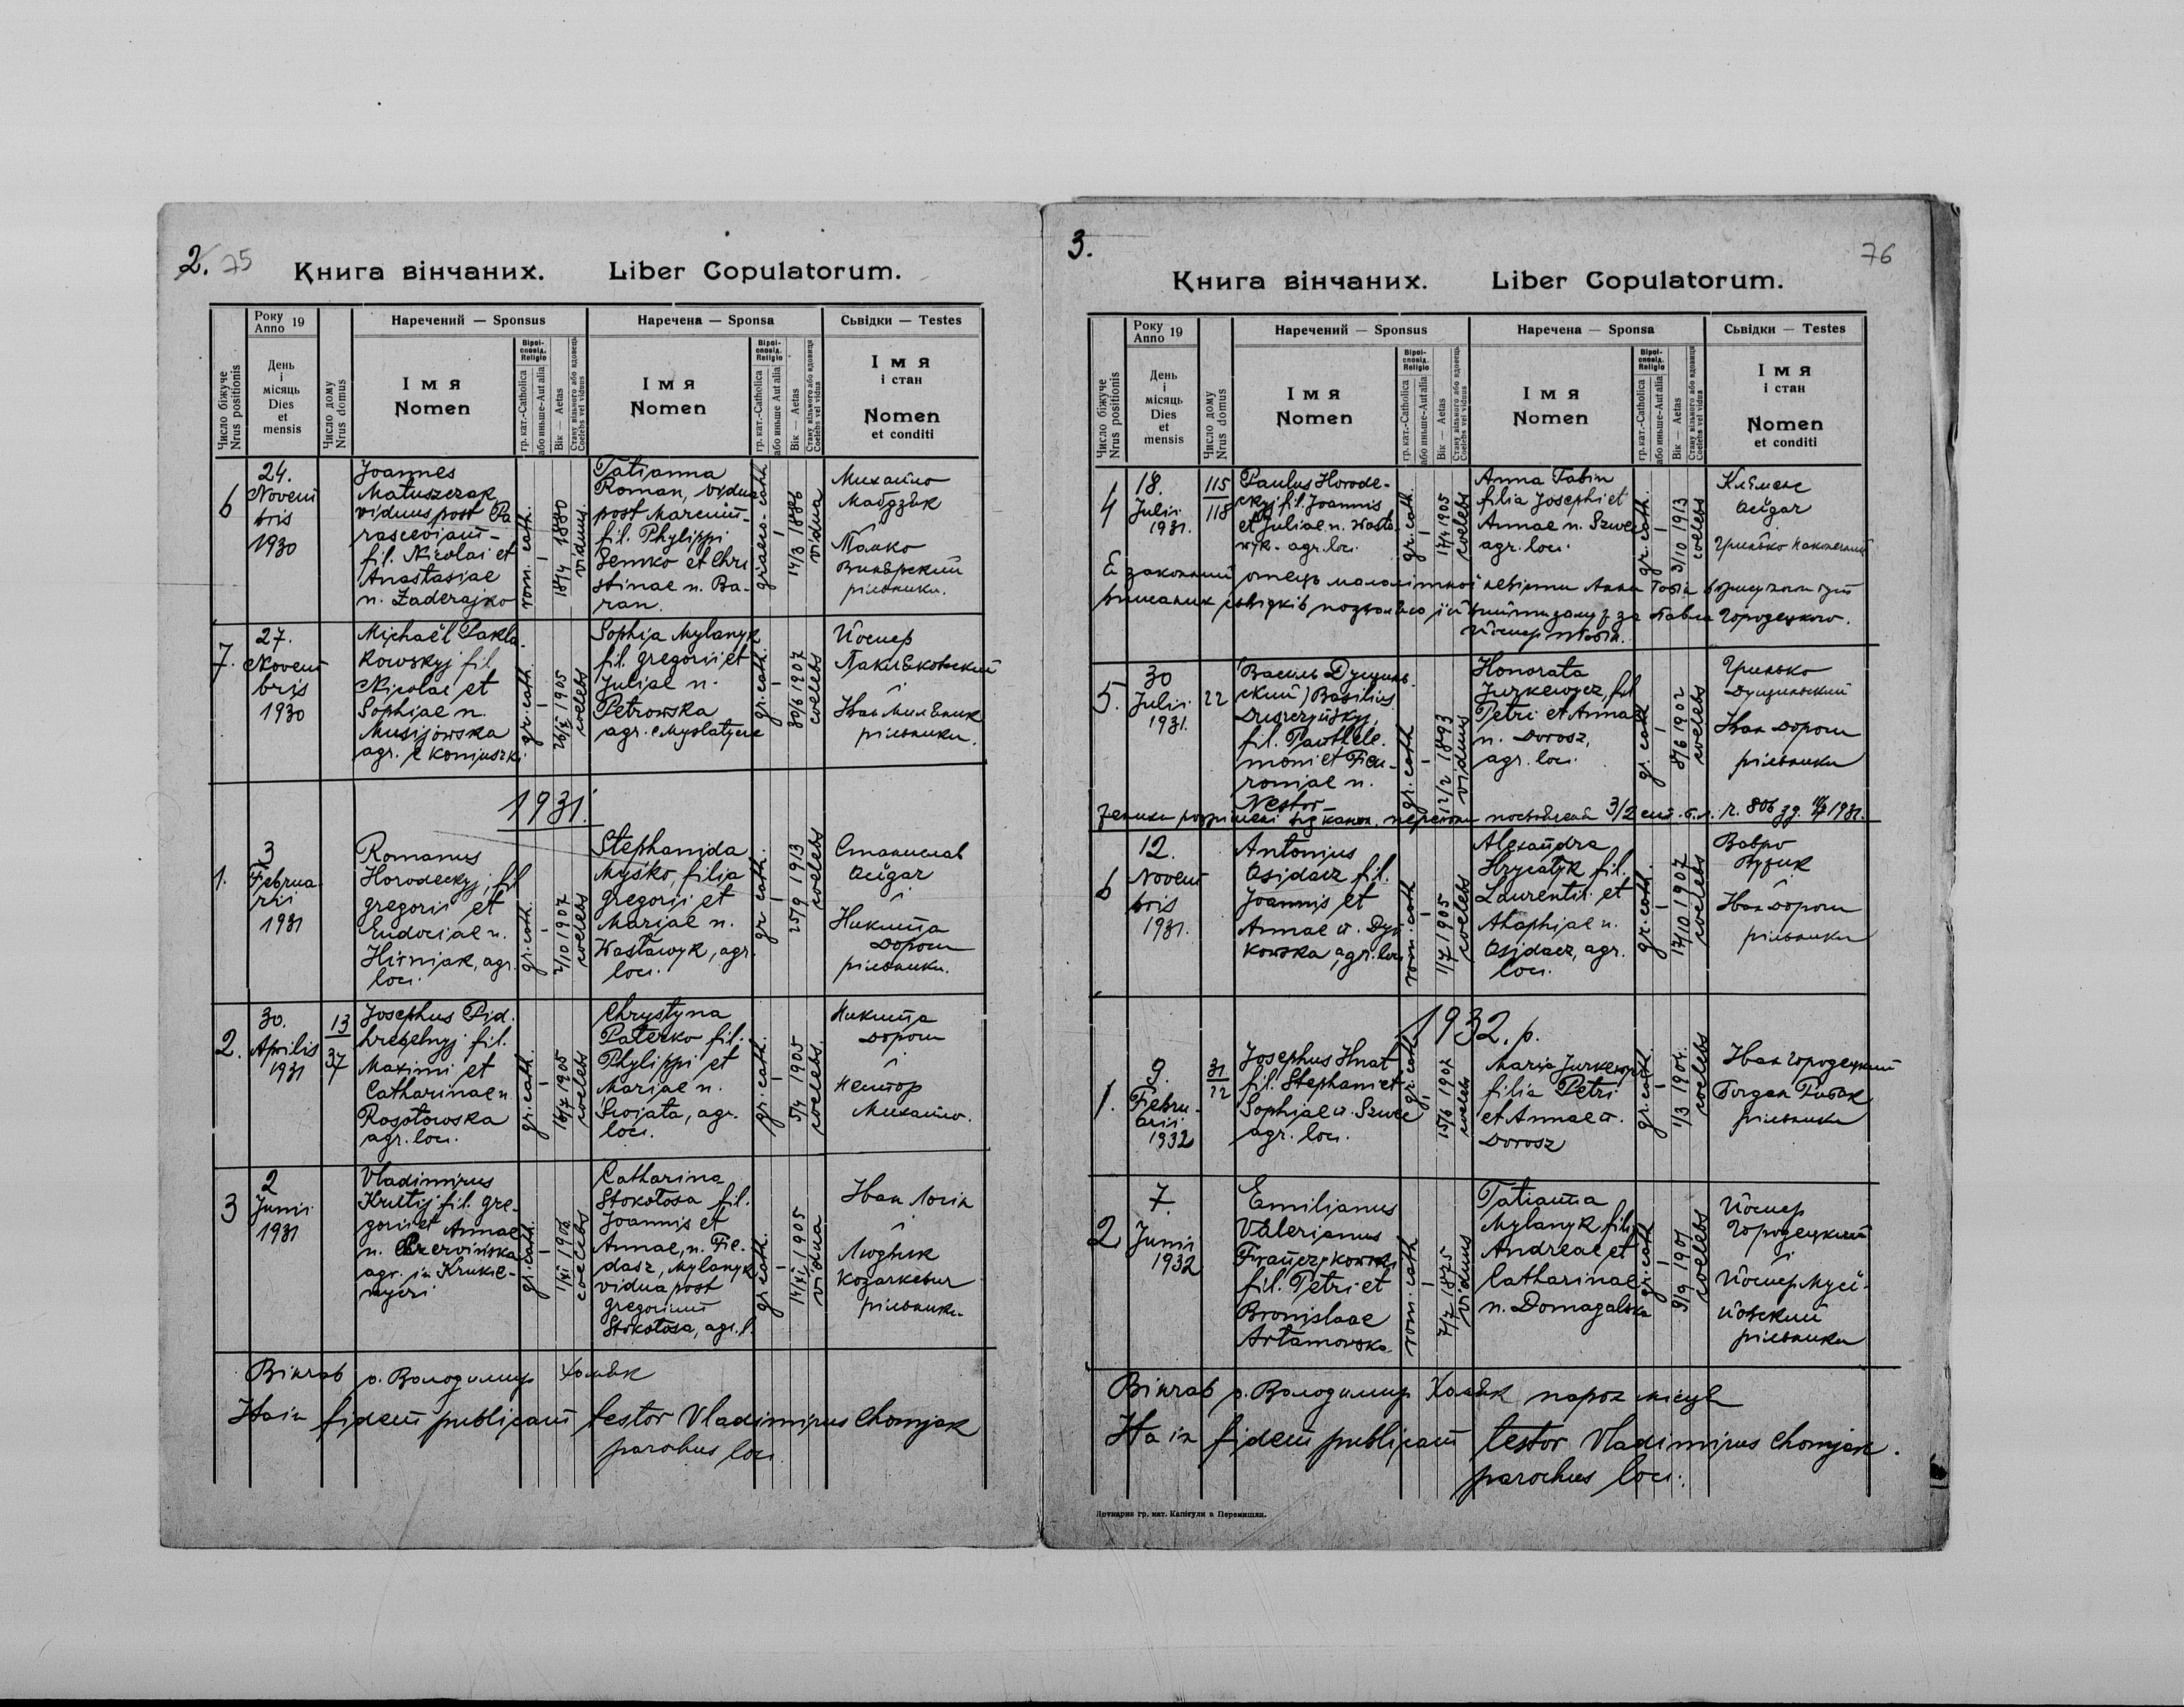 2. 75
Книга вінчаних. Liber Copulatorum.
Року
Anno 19
Наречений — Sponsus
Наречена — Sponsa
Сьвідки — Testes
Число біжуче
Nrus positionis
День
і
місяць
Dies
et
mensis
Число дому
Nrus domus
Імя
Nomen
Віроі-
сповід.
Religio
гр. кат.-Catholica
або иньше-Aut alia
Вік — Aetas
Стану вільного або вдовець
Coelebs vel viduus
Імя
Nomen
Віроі-
сповід.
Religio
гр. кат.-Catholica
або иньше Aut alia
Вік — Aetas
Стану вільного або вдовиця
Coelebs vel vidua
Імя
і стан
Nomen
et conditi
6
24.
Novem
bris
1930
Joannes
Matuszczak
viduus post Pa
rasceviam-
fil. Nicolai et
Anastasiae
n. Zaderajko
rom. cath.
18/4 1880
viduus.
Tatianna
Roman, vidua
post Marcum-
fil. Phylippi
Semko et Chri
stinae n. Ba-
ran.
graeco-cath
14/3 1886
vidua
Михайло
і
рільники.
7.
27.
Novem
bris
1930
Michaël Pakla
kowskyj fil.
Nicolae et
Sophiae n.
Musijowska
agr. e Koniuszki
gr. cath.
26/X 1905
coelebs
Sophia Mylanyk
fil. Gregorii et
Juliae n.
Petrowska
agr. e Myslatycze
gr. cath.
30/6 1907
coelebs
Йосиф
Пакляковський
і
Іван Миляник
рільники.
1931.
1.
3
Februa
rii
1931
Romanus
Horodeckyj, fil
Gregorii et
Eudociae n.
Hiśniak, agr.
loci.
gr. cath.
2/10 1907
coelebs
Stephanida
Myśko, filia
Gregorii et
Mariae n.
Wastawyk, agr.
loci.
gr cath.
25/9 1913
coelebs
Станислав
Осідач
і
Никита
Дорош
рільники.
2.
30.
Aprilis
1931
13
37
Josephus Pid
hreqelnyj fil.
Maximi et
Catharinae n
Rogotowska
agr. loci.
gr. cath.
16/7 1905
coelebs
Chrystyna
Paterko fil.
Phylippi et
Mariae n.
Swojata, agr.
loci.
gr. cath.
5/4 1905
coelebs.
Никита
Дорош
і
Нестор
Михайло.
3
2
Junii
1931
Vladimirus
Krultij fil. Gre-
gorii et Annae
n. Czerwińska
agr. in Krukie-
nyci
gr. cath.
coelebs
Catharina
Stokotosa fil.
Joannis et
Annae, n. Fie-
dasz, Mylanyk
vidua post
Gregorium
Stokotosa, agr. l.
gr. cath.
14/XI 1905
vidua
Іван Логін
і
Людвик
Козаркевич
рільники.
Вінчав о. Володимир Хомяк
In fidem publicam testor Vladimirus Chomjak
parochus loci
3.
76
Книга вінчаних. Liber Copulatorum.
Року
Anno 19
Наречений — Sponsus
Наречена — Sponsa
Сьвідки — Testes
Число біжуче
Nrus positionis
День
і
місяць
Dies
et
mensis
Число дому
Nrus domus
Імя
Nomen
Віроі-
сповід.
Religio
гр. кат.-Catholica
або иньше-Aut alia
Вік — Aetas
Стану вільного або вдовець
Coelebs vel viduus
Імя
Nomen
Віроі-
сповід.
Religio
гр. кат.-Catholica
або иньше-Aut alia
Вік — Aetas
Стану вільного або вдовиця
Coelebs vel vidua
Імя
і стан
Nomen
et conditi
4
18.
Julii
1931.
115
118
Paulus Horode-
ckyj fil. Joannis
et Juliae n. Wasta-
wyk - agr. loci.
gr. cath.
17/4 1905
coelebs
Anna Tabin
filia Josephi et
Annae n. Szwec
agr. loci.
gr. cath.
3/10 1913
coelebs
Клеменс
Осідач
Гринько
законний отець малолітної невісти Анни Тобін в присутности
вписаних сьвідків позволяю їй вийти замуж за Павла Городецкого.
Йосиф Тобін.
5.
30
Julii
1931.
22
Василь Дущинь
ский) Basilius
Duszczyńskyj,
fil. Panthele.
moni et Fev-
roniae n.
Nestor-
gr. cath
12/2 1893
viduus
Honorata
Jurkewycz, fil
Petri et Annae
n. Dorosz,
agr. loci.
gr. cath
8/6 1902
coelebs
Гринько
Дущиньский
Іван Дорош
рільники
ч. 806 1931.
6
12.
Novem
bris
1931.
Antonius
Osidacz fil.
Joannis et
Annae n. Dyi
kowska, agr. loci
rom. cath
1/7 1905
coelebs
Alexandra
Hrycatyk fil.
Laurentii et
Ahaphiae n.
Osidacz, agr.
loci.
gr. cath.
17/10 1907
coelebs
Вавро
і
Іван Дорош
рільники
1932. р.
1.
9.
Febru-
arii
1932
31
22
Josephus Hnat
fil. Stephani et
Sophiae n. Szwec
agr. loci.
gr. cath
15/6 1907
coelebs
Maria Jurkewycz
filia Petri
et Annae n.
Dorosz
gr. cath.
1/3 1904.
coelebs
Іван Городецкий
Богдан
рільники
2
7.
Junii
1932
Emilianus
Valerianus
Franczykowski
fil. Petri et
Bronislaae
Artamowska
rom. cath
7/7 1875
viduus
Tatianna
Mylanyk filia
Andreae et
Catharinae
n. Domagalska
gr. cath
9/9 1901
coelebs
Йосиф
Городецкий
і
Йосиф Мусі-
йовский
рільники
Вінчав о. Володимир Хомяк парох місця
In fidem publicam testor Vladimirus Chomjak.
parochus loci.
Друкарня гр. кат. Капітули в Перемишли.